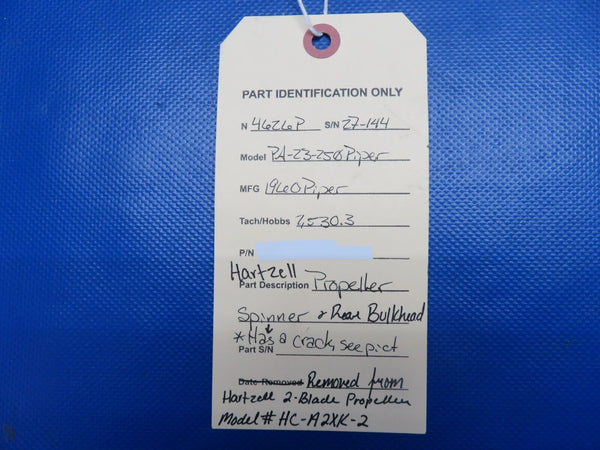 PART IDENTIFICATION ONLY
N 4626P S/N 27-144
Model PA-23-250 Piper
MFG 1960 Piper
Tach/Hobbs 7,530.3
P/N
Hartzell
Part Description Propeller
Spinner & Rear Bulkhead
*Has a crack, see pict
Part S/N
Date Removed Removed from
Hartzell 2-Blade Propeller
Model# HC-A2XK-2